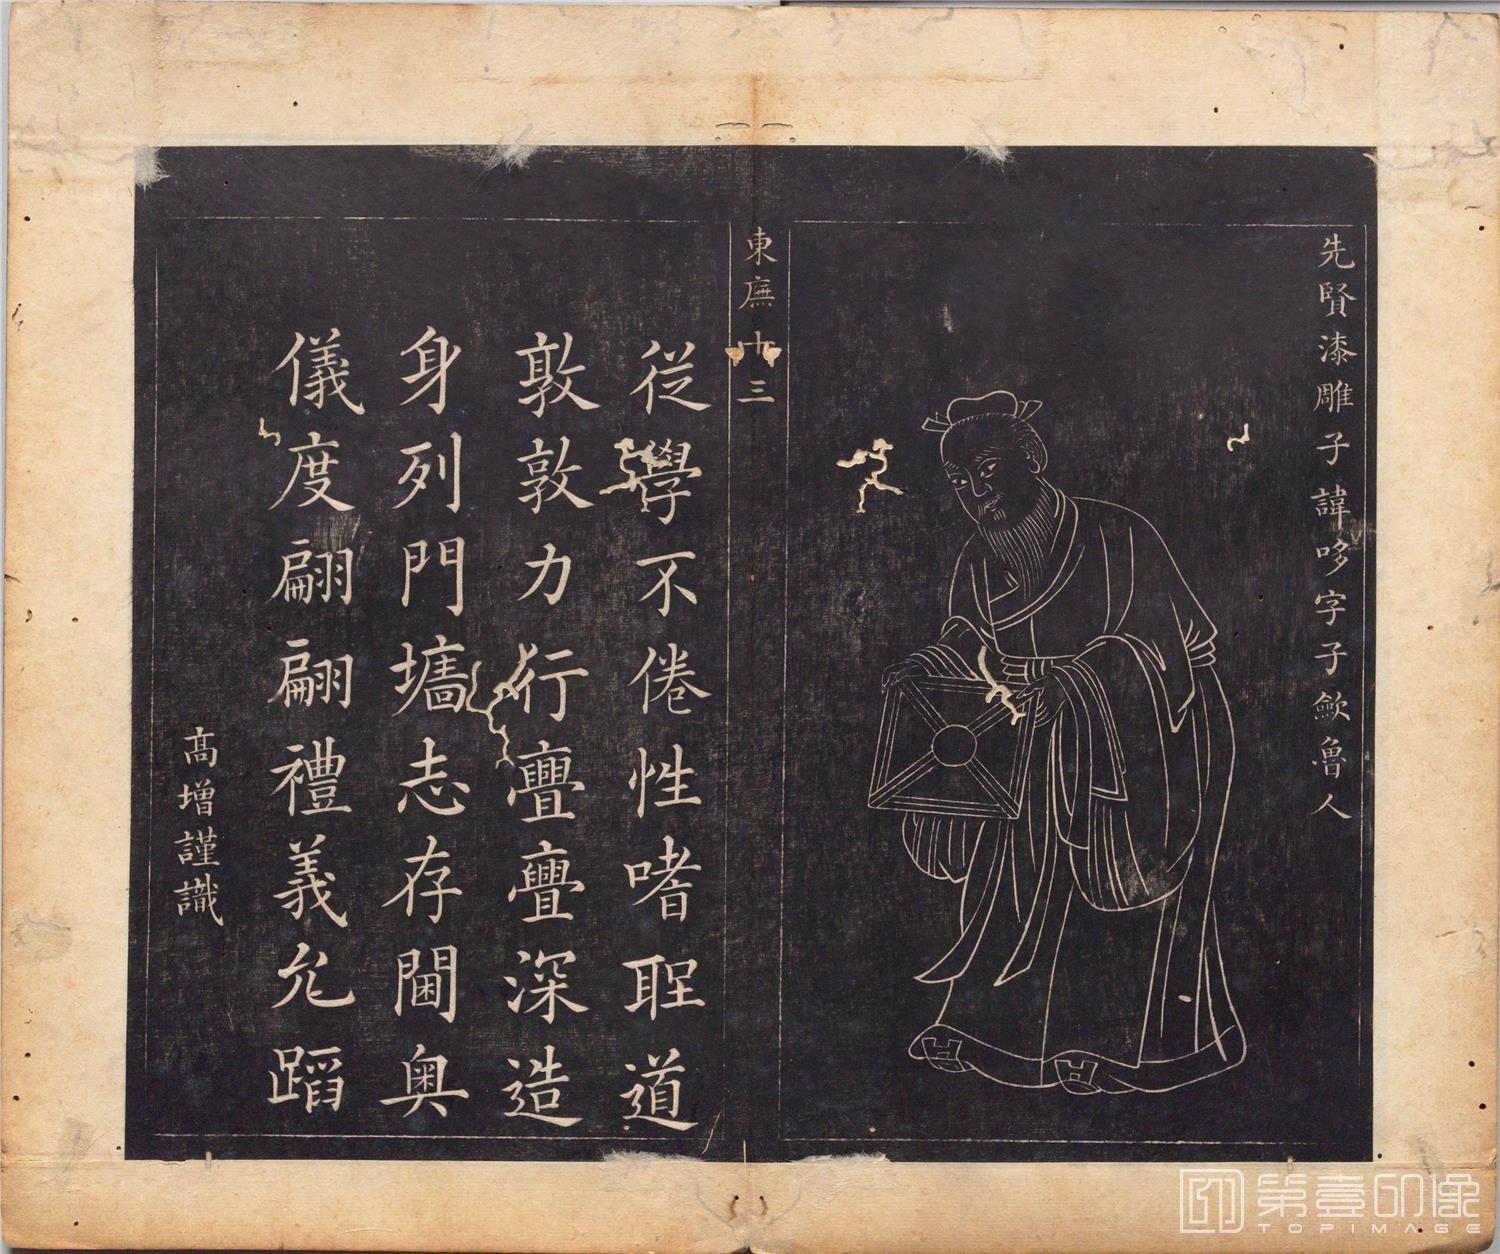 先賢漆雕子諱哆字子歛魯人
東廡十三
從學不倦性嗜聖道
敦敦力行亹亹深造
身列門墻志存閫奥
儀度翩翩禮義允蹈
高增謹識
第壹印像
TOPIMAGE